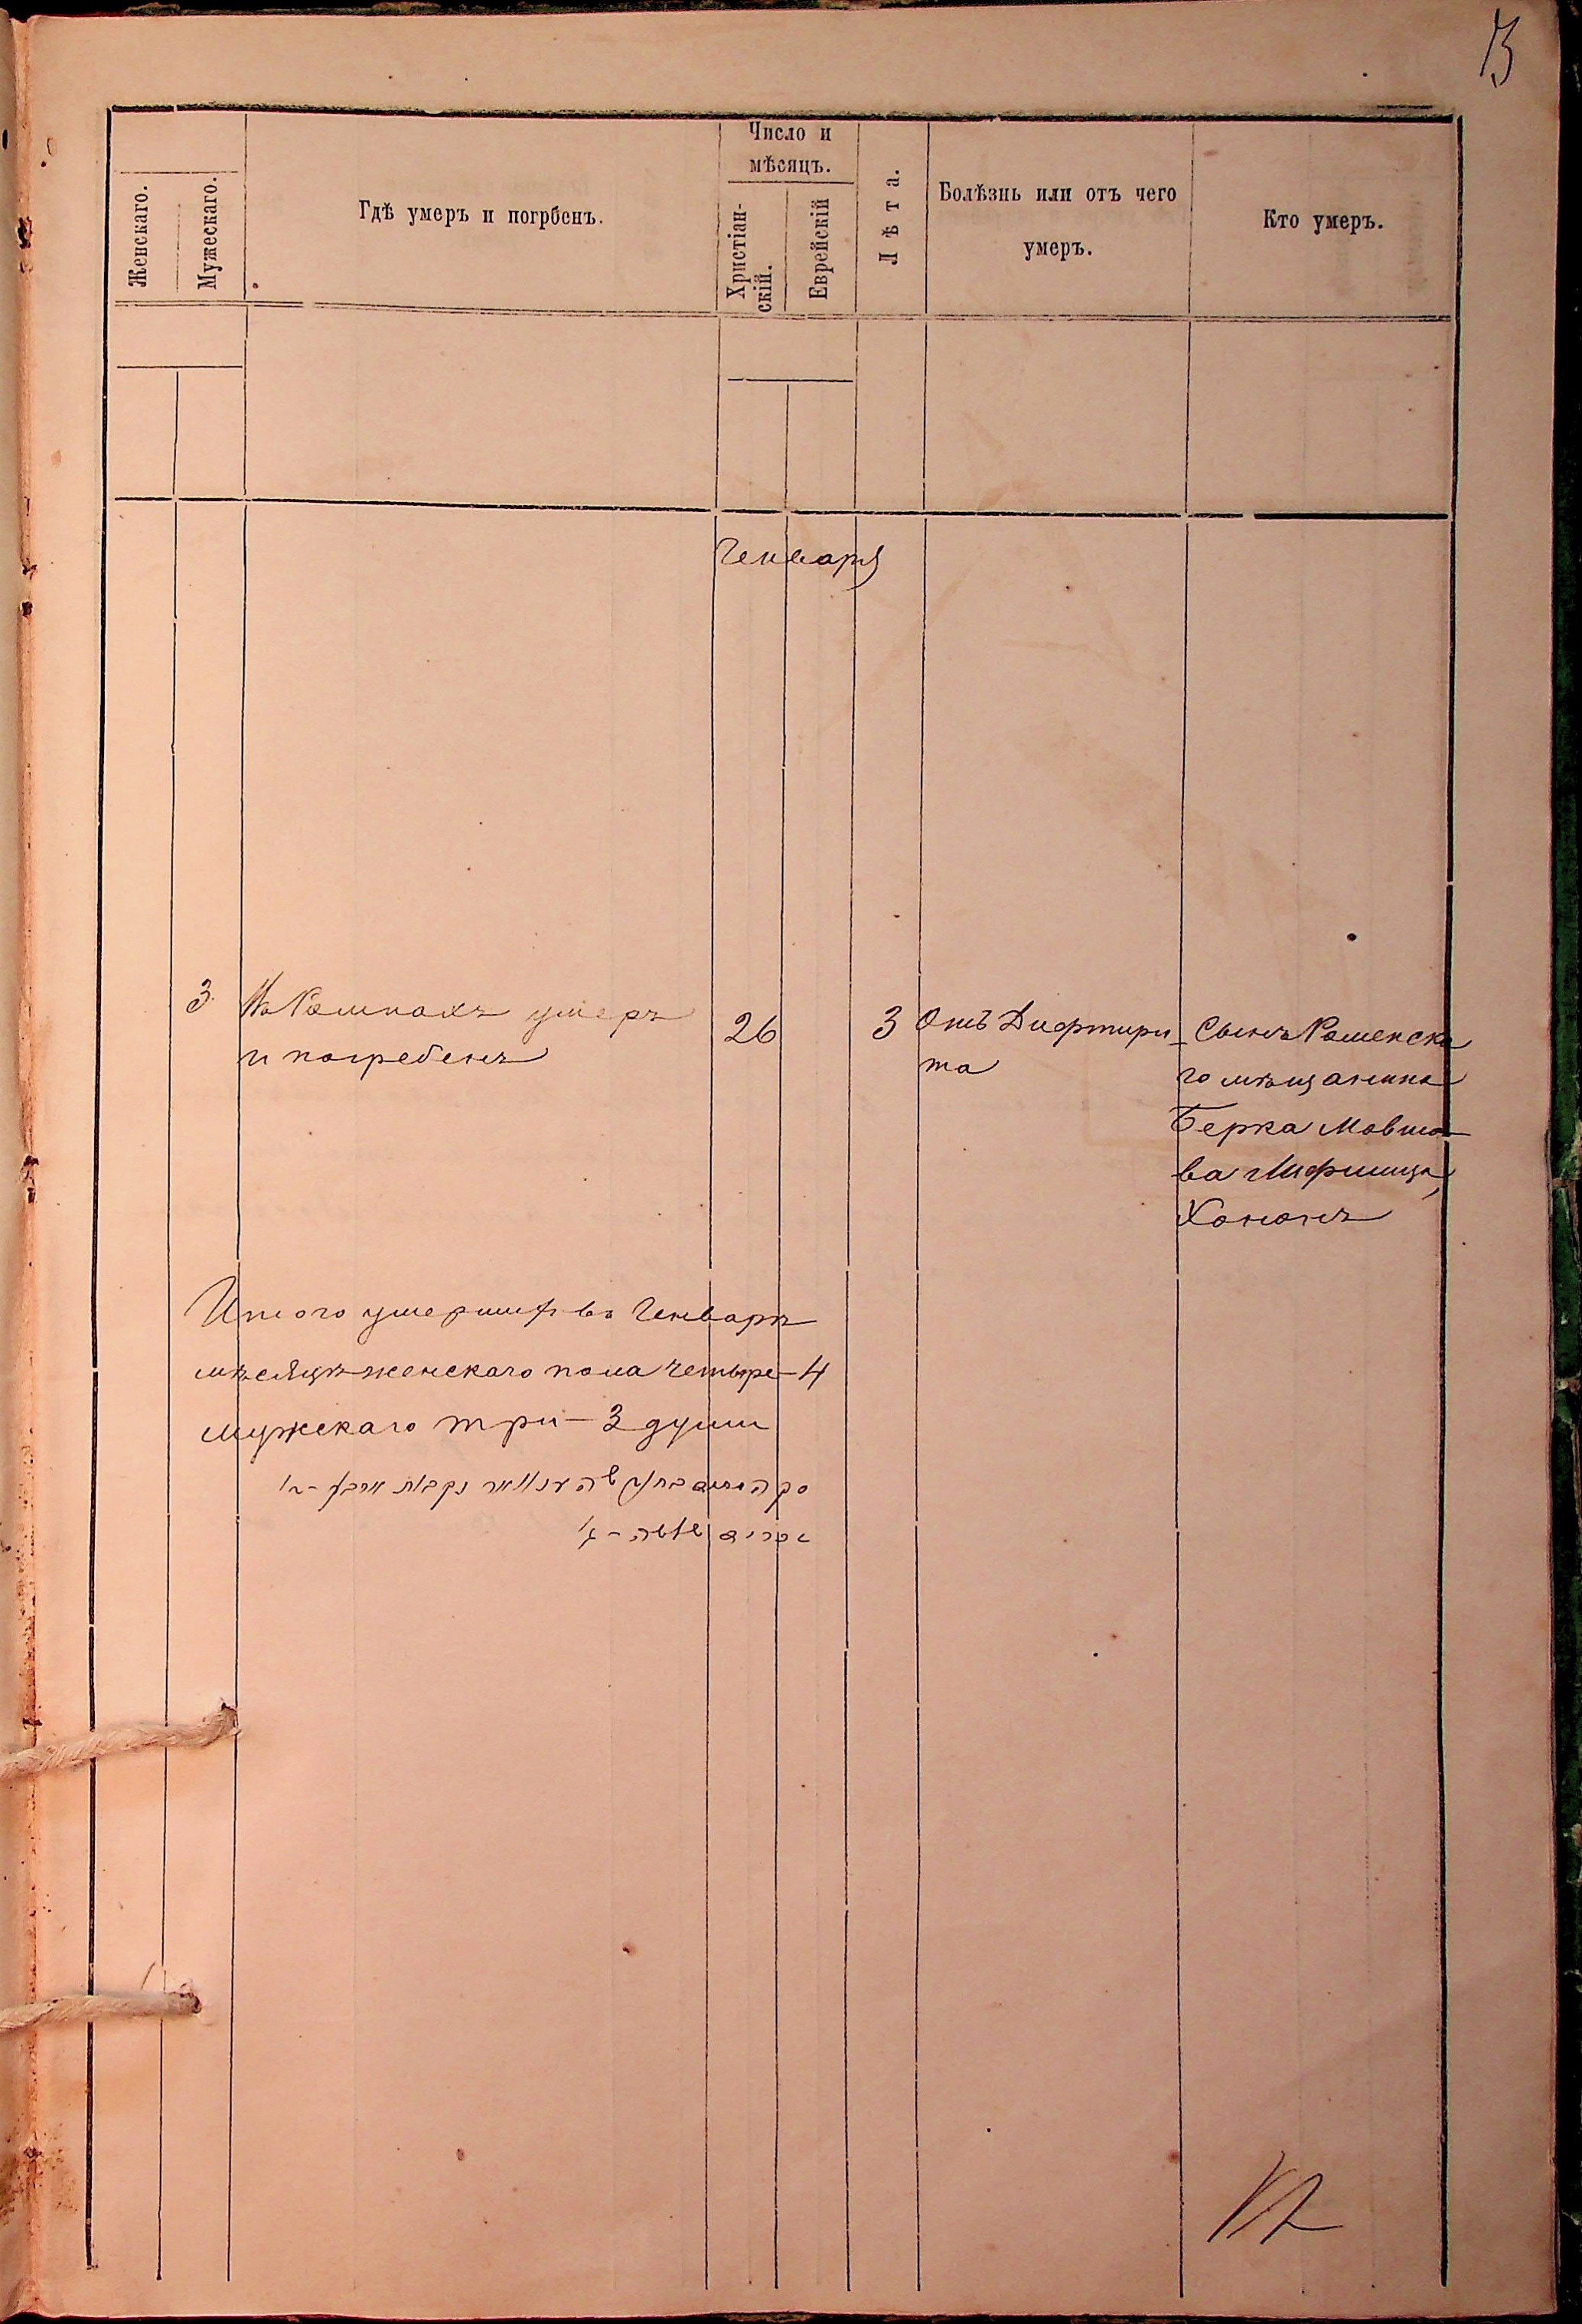 73
Женскаго.
Мужескаго.
Гдѣ умеръ и погрбенъ.
Число и
мѣсяцъ.
Христіан-
скій.
Еврейскій
Лѣта.
Болѣзнь или отъ чего
умеръ.
Кто умеръ.
Генваря
3 Въ Ромнахъ умеръ
и погребенъ
26
3
Отъ Дифтири-
та
Сынъ Роменска
го мѣщанина
Берка Мовшо-
ва
Хононъ
Итого умершихъ въ Генварѣ
мѣсяцѣ женскаго пола четыре - 4
мужскаго три - 3 души